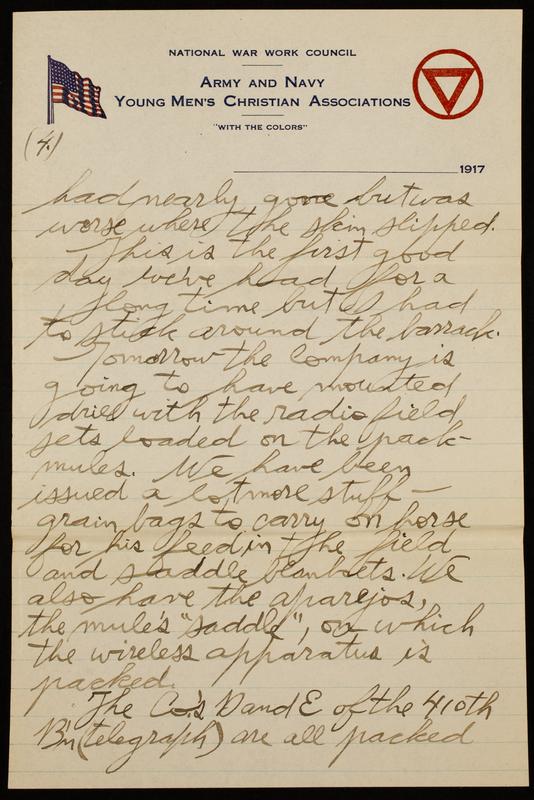 NATIONAL WAR WORK COUNCIL
ARMY AND NAVY
YOUNG MEN'S CHRISTIAN ASSOCIATIONS
"WITH THE COLORS"
(4.)
1917
had nearly gone but was
worse where the skin slipped.
This is the first good
day we've had for a
long time but I had
to stick around the barrack.
Tomorrow the Company is
going to have mounted
drill with the radio field
sets loaded on the pack-
mules. We have been
issued a lot more stuff —
grain bags to carry on horse
for his feed in the field
and saddle blankets. We
also have the aparejos,
the mule's "saddle", on which
the wireless apparatus is
packed.
The Co.'s D and E of the 410th
Bn (telegraph) are all packed